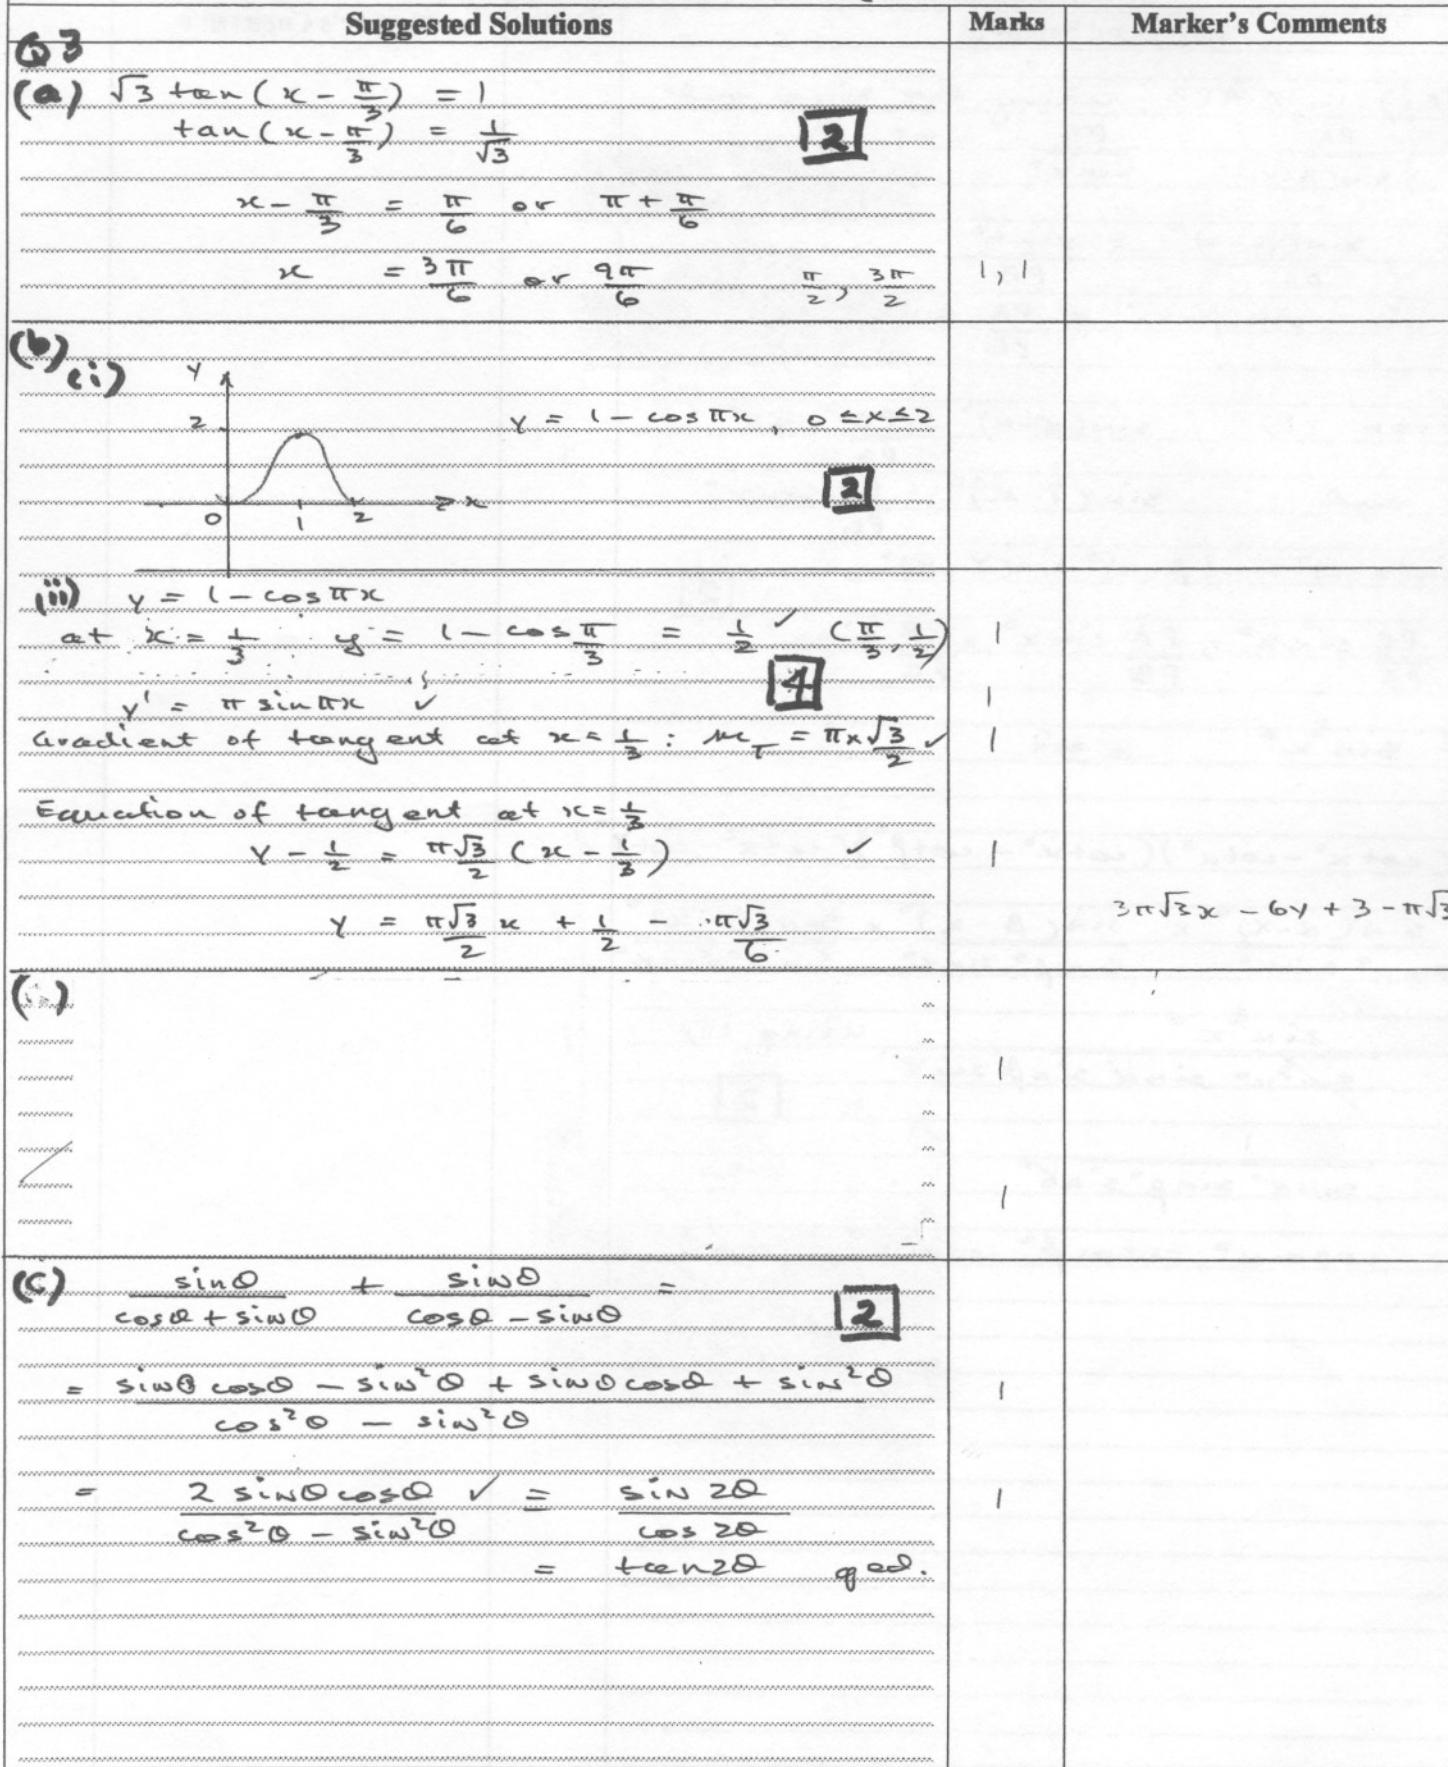 Suggested Solutions Marks Marker's Comments
Q3
(a) √3 tan(x - π/3) = 1
tan(x - π/3) = 1/√3 [2]
x - π/3 = π/6 or π + π/6
x = 3π/6 or 9π/6 π/2, 3π/2 1, 1
(b) (i) y
2 y = 1 - cos πx, 0 ≤ x ≤ 2
[2]
0 1 2 x
(ii) y = 1 - cos πx
at x = 1/3 y = 1 - cos π/3 = 1/2 ✓ (π/3, 1/2) 1
[4]
y' = π sin πx ✓ 1
Gradient of tangent at x = 1/3 : m_T = π × √3/2 ✓ 1
Equation of tangent at x = 1/3
y - 1/2 = π√3/2 (x - 1/3) ✓ 1
3π√3x - 6y + 3 - π√3
y = π√3/2 x + 1/2 - π√3/6
1
1
(c) sinθ/(cosθ + sinθ) + sinθ/(cosθ - sinθ) = [2]
= (sinθ cosθ - sin²θ + sinθ cosθ + sin²θ)/(cos²θ - sin²θ) 1
= 2 sinθ cosθ/(cos²θ - sin²θ) ✓ = sin 2θ/cos 2θ 1
= tan2θ qed.